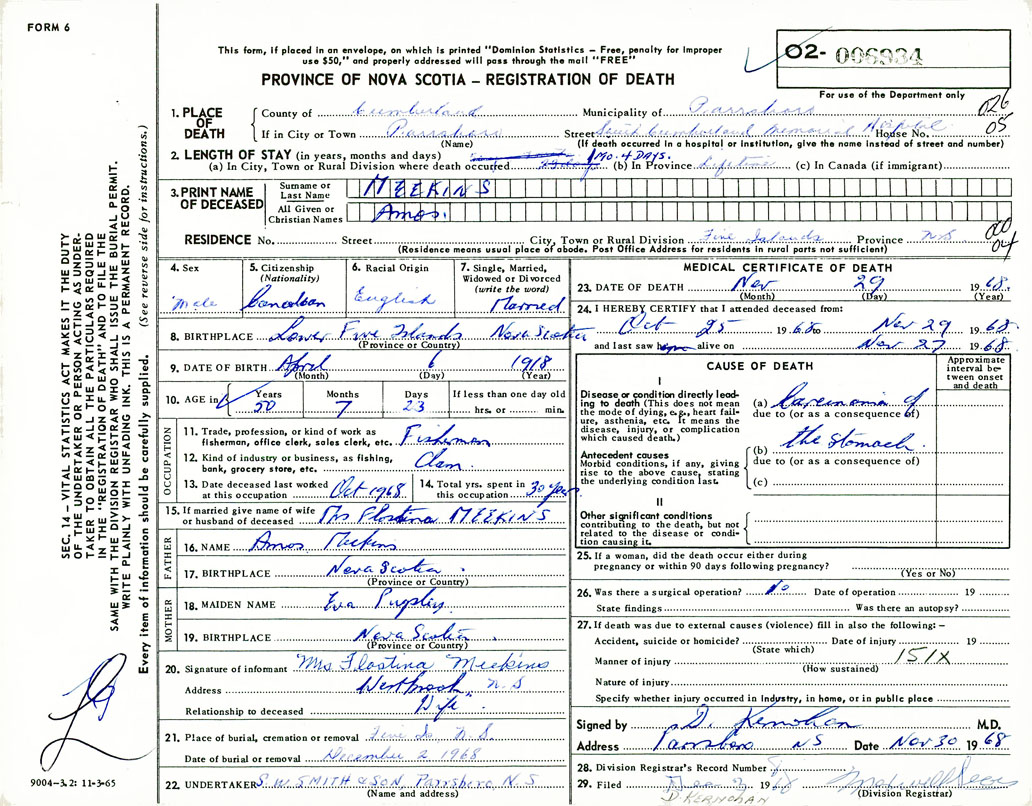 FORM 6
This form, if placed in an envelope, on which is printed "Dominion Statistics – Free, penalty for improper
use $50," and properly addressed will pass through the mail "FREE"
PROVINCE OF NOVA SCOTIA – REGISTRATION OF DEATH
02- 006934
For use of the Department only
026
05
1. PLACE OF DEATH
County of Cumberland Municipality of Parrsboro
If in City or Town Parrsboro Street South Cumberland Memorial Hospital House No.
(Name) (If death occurred in a hospital or institution, give the name instead of street and number)
2. LENGTH OF STAY (in years, months and days)
(a) In City, Town or Rural Division where death occurred 1 MO. 4 DAYS. (b) In Province Lifetime (c) In Canada (if immigrant)
3. PRINT NAME OF DECEASED
Surname or Last Name MEEKINS
All Given or Christian Names Amos.
RESIDENCE No. Street City, Town or Rural Division Five Islands Province N.S
(Residence means usual place of abode. Post Office Address for residents in rural parts not sufficient)
000
04
4. Sex Male
5. Citizenship (Nationality) Canadian
6. Racial Origin English
7. Single, Married, Widowed or Divorced (write the word) Married
8. BIRTHPLACE Lower Five Islands Nova Scotia
(Province or Country)
9. DATE OF BIRTH April 6 1918
(Month) (Day) (Year)
10. AGE in Years 50 Months 7 Days 23 If less than one day old hrs. or min.
OCCUPATION
11. Trade, profession, or kind of work as fisherman, office clerk, sales clerk, etc. Fisherman
12. Kind of industry or business, as fishing, bank, grocery store, etc. Clam
13. Date deceased last worked at this occupation Oct 1968
14. Total yrs. spent in this occupation 30 years
15. If married give name of wife or husband of deceased Mrs Flostina MEEKINS
FATHER
16. NAME Amos Meekins
17. BIRTHPLACE Nova Scotia
(Province or Country)
MOTHER
18. MAIDEN NAME Eva Pugsley
19. BIRTHPLACE Nova Scotia
(Province or Country)
20. Signature of informant Mrs Flostina Meekins
Address Westbrook, N S
Relationship to deceased Wife
21. Place of burial, cremation or removal Five Is N. S.
Date of burial or removal December 2 1968
22. UNDERTAKER S. W. SMITH & SON, Parrsboro N.S
(Name and address)
MEDICAL CERTIFICATE OF DEATH
23. DATE OF DEATH Nov 29 1968
(Month) (Day) (Year)
24. I HEREBY CERTIFY that I attended deceased from:
Oct 25 1968 to Nov 29 1968
and last saw h alive on Nov 27 1968
CAUSE OF DEATH
Approximate interval between onset and death
I
Disease or condition directly leading to death (This does not mean the mode of dying, e.g., heart failure, asthenia, etc. It means the disease, injury, or complication which caused death.)
(a) Carcinoma of
due to (or as a consequence of)
Antecedent causes
Morbid conditions, if any, giving rise to the above cause, stating the underlying condition last.
(b) the stomach
due to (or as a consequence of)
(c)
II
Other significant conditions contributing to the death, but not related to the disease or condition causing it.
25. If a woman, did the death occur either during pregnancy or within 90 days following pregnancy?
(Yes or No)
26. Was there a surgical operation? No Date of operation 19
State findings Was there an autopsy?
27. If death was due to external causes (violence) fill in also the following: –
Accident, suicide or homicide? Date of injury 19
(State which)
Manner of injury 151X
(How sustained)
Nature of injury
Specify whether injury occurred in industry, in home, or in public place
Signed by D. Kernohan M.D.
Address Parrsboro NS Date Nov 30 1968
28. Division Registrar's Record Number
29. Filed Dec 2 1968
(Division Registrar)
D. KERNOHAN
SEC. 14 – VITAL STATISTICS ACT MAKES IT THE DUTY
OF THE UNDERTAKER OR PERSON ACTING AS UNDER-
TAKER TO OBTAIN ALL THE PARTICULARS REQUIRED
IN THE "REGISTRATION OF DEATH" AND TO FILE THE
SAME WITH THE DIVISION REGISTRAR WHO SHALL ISSUE THE BURIAL PERMIT.
WRITE PLAINLY WITH UNFADING INK. THIS IS A PERMANENT RECORD.
Every item of information should be carefully supplied. (See reverse side for instructions.)
9004–3.2: 11-3-65